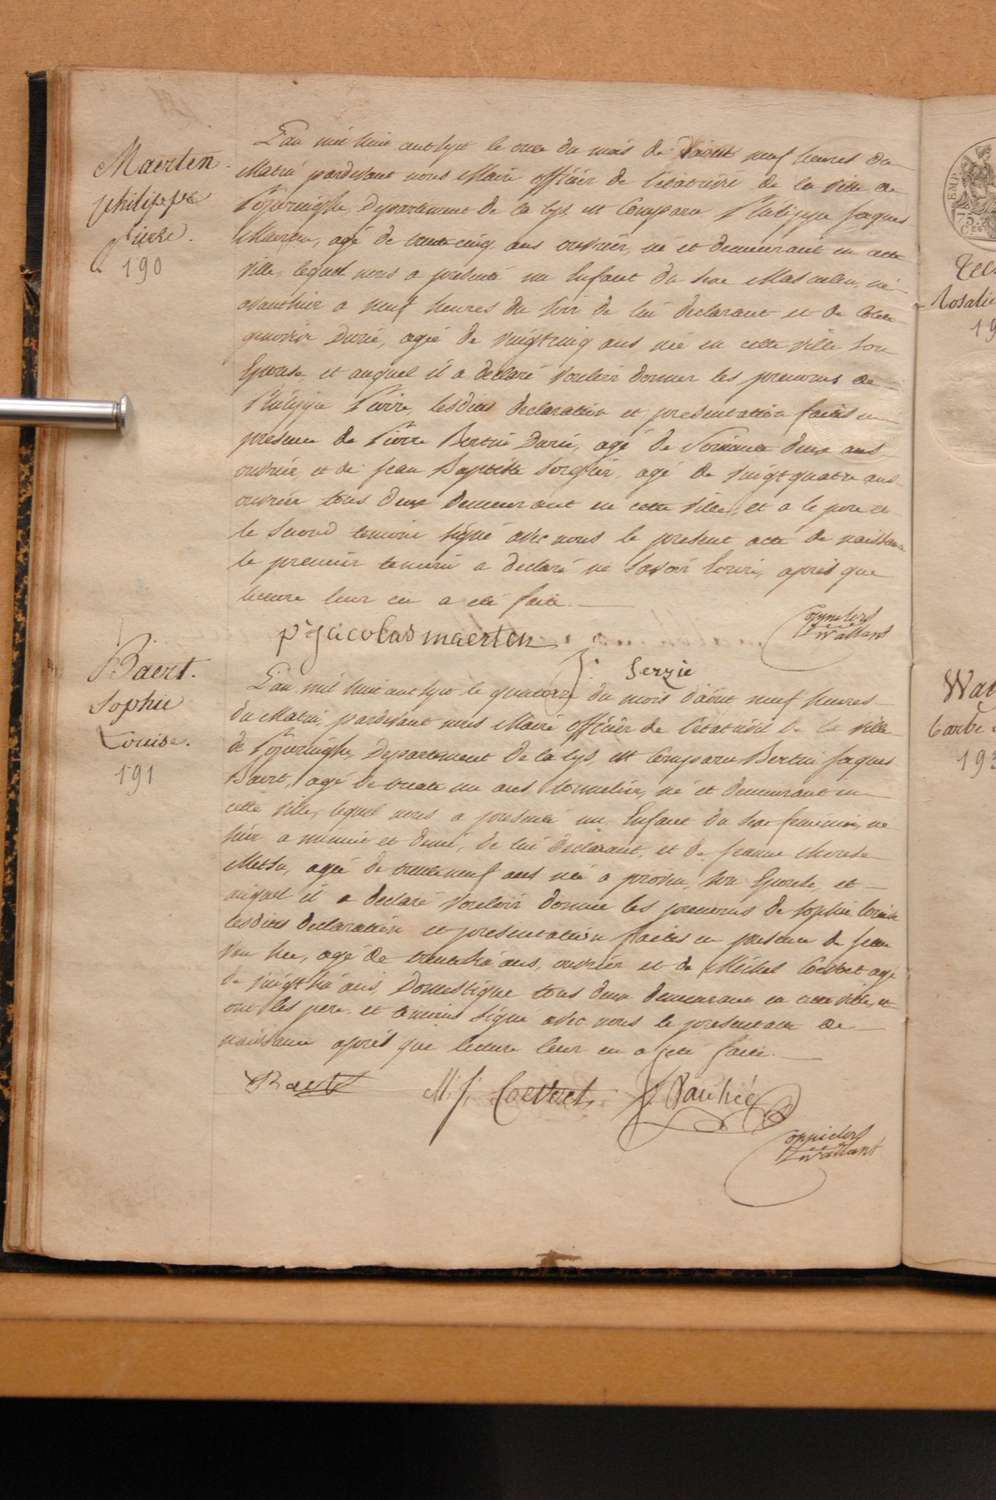 Maerten
philippe
Pierre.
190
L'an mil huit cent sept le onze du mois de d'aout neuf heures du
Matin pardevant nous Maire officier de l'etat civil de la ville de
Poperinghe, Departement de la Lys, est Comparu Philippe Jaques
Maerten, agé de trente cinq ans ouvrier, né et demeurant en cette
ville, lequel nous a presenté un Enfant du sexe Masculin, né
avanthier a neuf heures du soir de lui declarant et de
Durie, agée de vingtcinq ans née en cette ville son
Epouse, et auquel il a declaré vouloir donner les prenoms de
Philippe Pierre, lesdites declaration et presentation faites en
presence de Pierre Bertin Durie, agé de Soixante deux ans
ouvrier et de Jean Baptiste agé de vingt quatre ans
ouvrier tous deux demeurant en cette ville, et a le pere et
le second temoin signé avec nous le present acte de naissance
le premier temoin a declaré ne savoir ecrire, après que
lecture leur en a été faite.
p's jacobas maerten
J: Serzie
Coppieters
t'Wallant
Baert.
Sophie
Louise.
191
L'an mil huit cent sept le quatorze du mois d'aôut neuf heures
du Matin, pardevant nous Maire officier de l'etat civil de la ville
de Poperinghe, Departement de la Lys, est Comparu Bertin Jaques
Baert, agé de trente un ans tonnelier, né et demeurant en
cette ville, lequel nous a presenté un Enfant du sexe feminin, né
hier a minuit et demi, de lui declarant, et de Jeanne therese
Metsu, agée de trente neuf ans née a proven, son Epouse, et
auquel il a declaré vouloir donner les prenoms de Sophie Louise
lesdites declaration et presentation faites en presence de Jean
Van hee, agé de trente ans, ouvrier et de Michel Coevoet agé
de vingt ans Domestique tous deux demeurant en cette ville, et
ont les pere et temoins signé avec nous le present acte de
naissance après que lecture leur en a été faite.
Baert
M. J. Coevoet
J. Vanhée
Coppieters
t'Wallant
EMP
75
Rosalie
19
Wa
Barbe
193